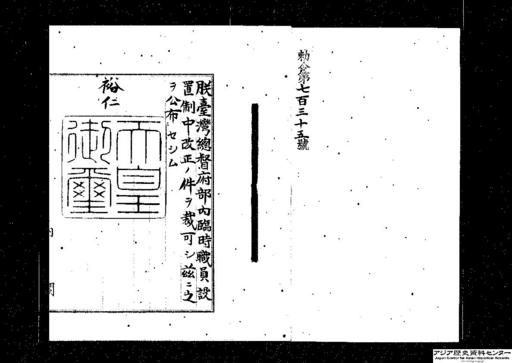 勅令第七百三十五號
朕臺灣總督府部內臨時職員設
置制中改正ノ件ヲ裁可シ茲ニ之
ヲ公布セシム
裕仁
天皇
御璽
内
閣
アジア歴史資料センター
Japan Center for Asian Historical Records